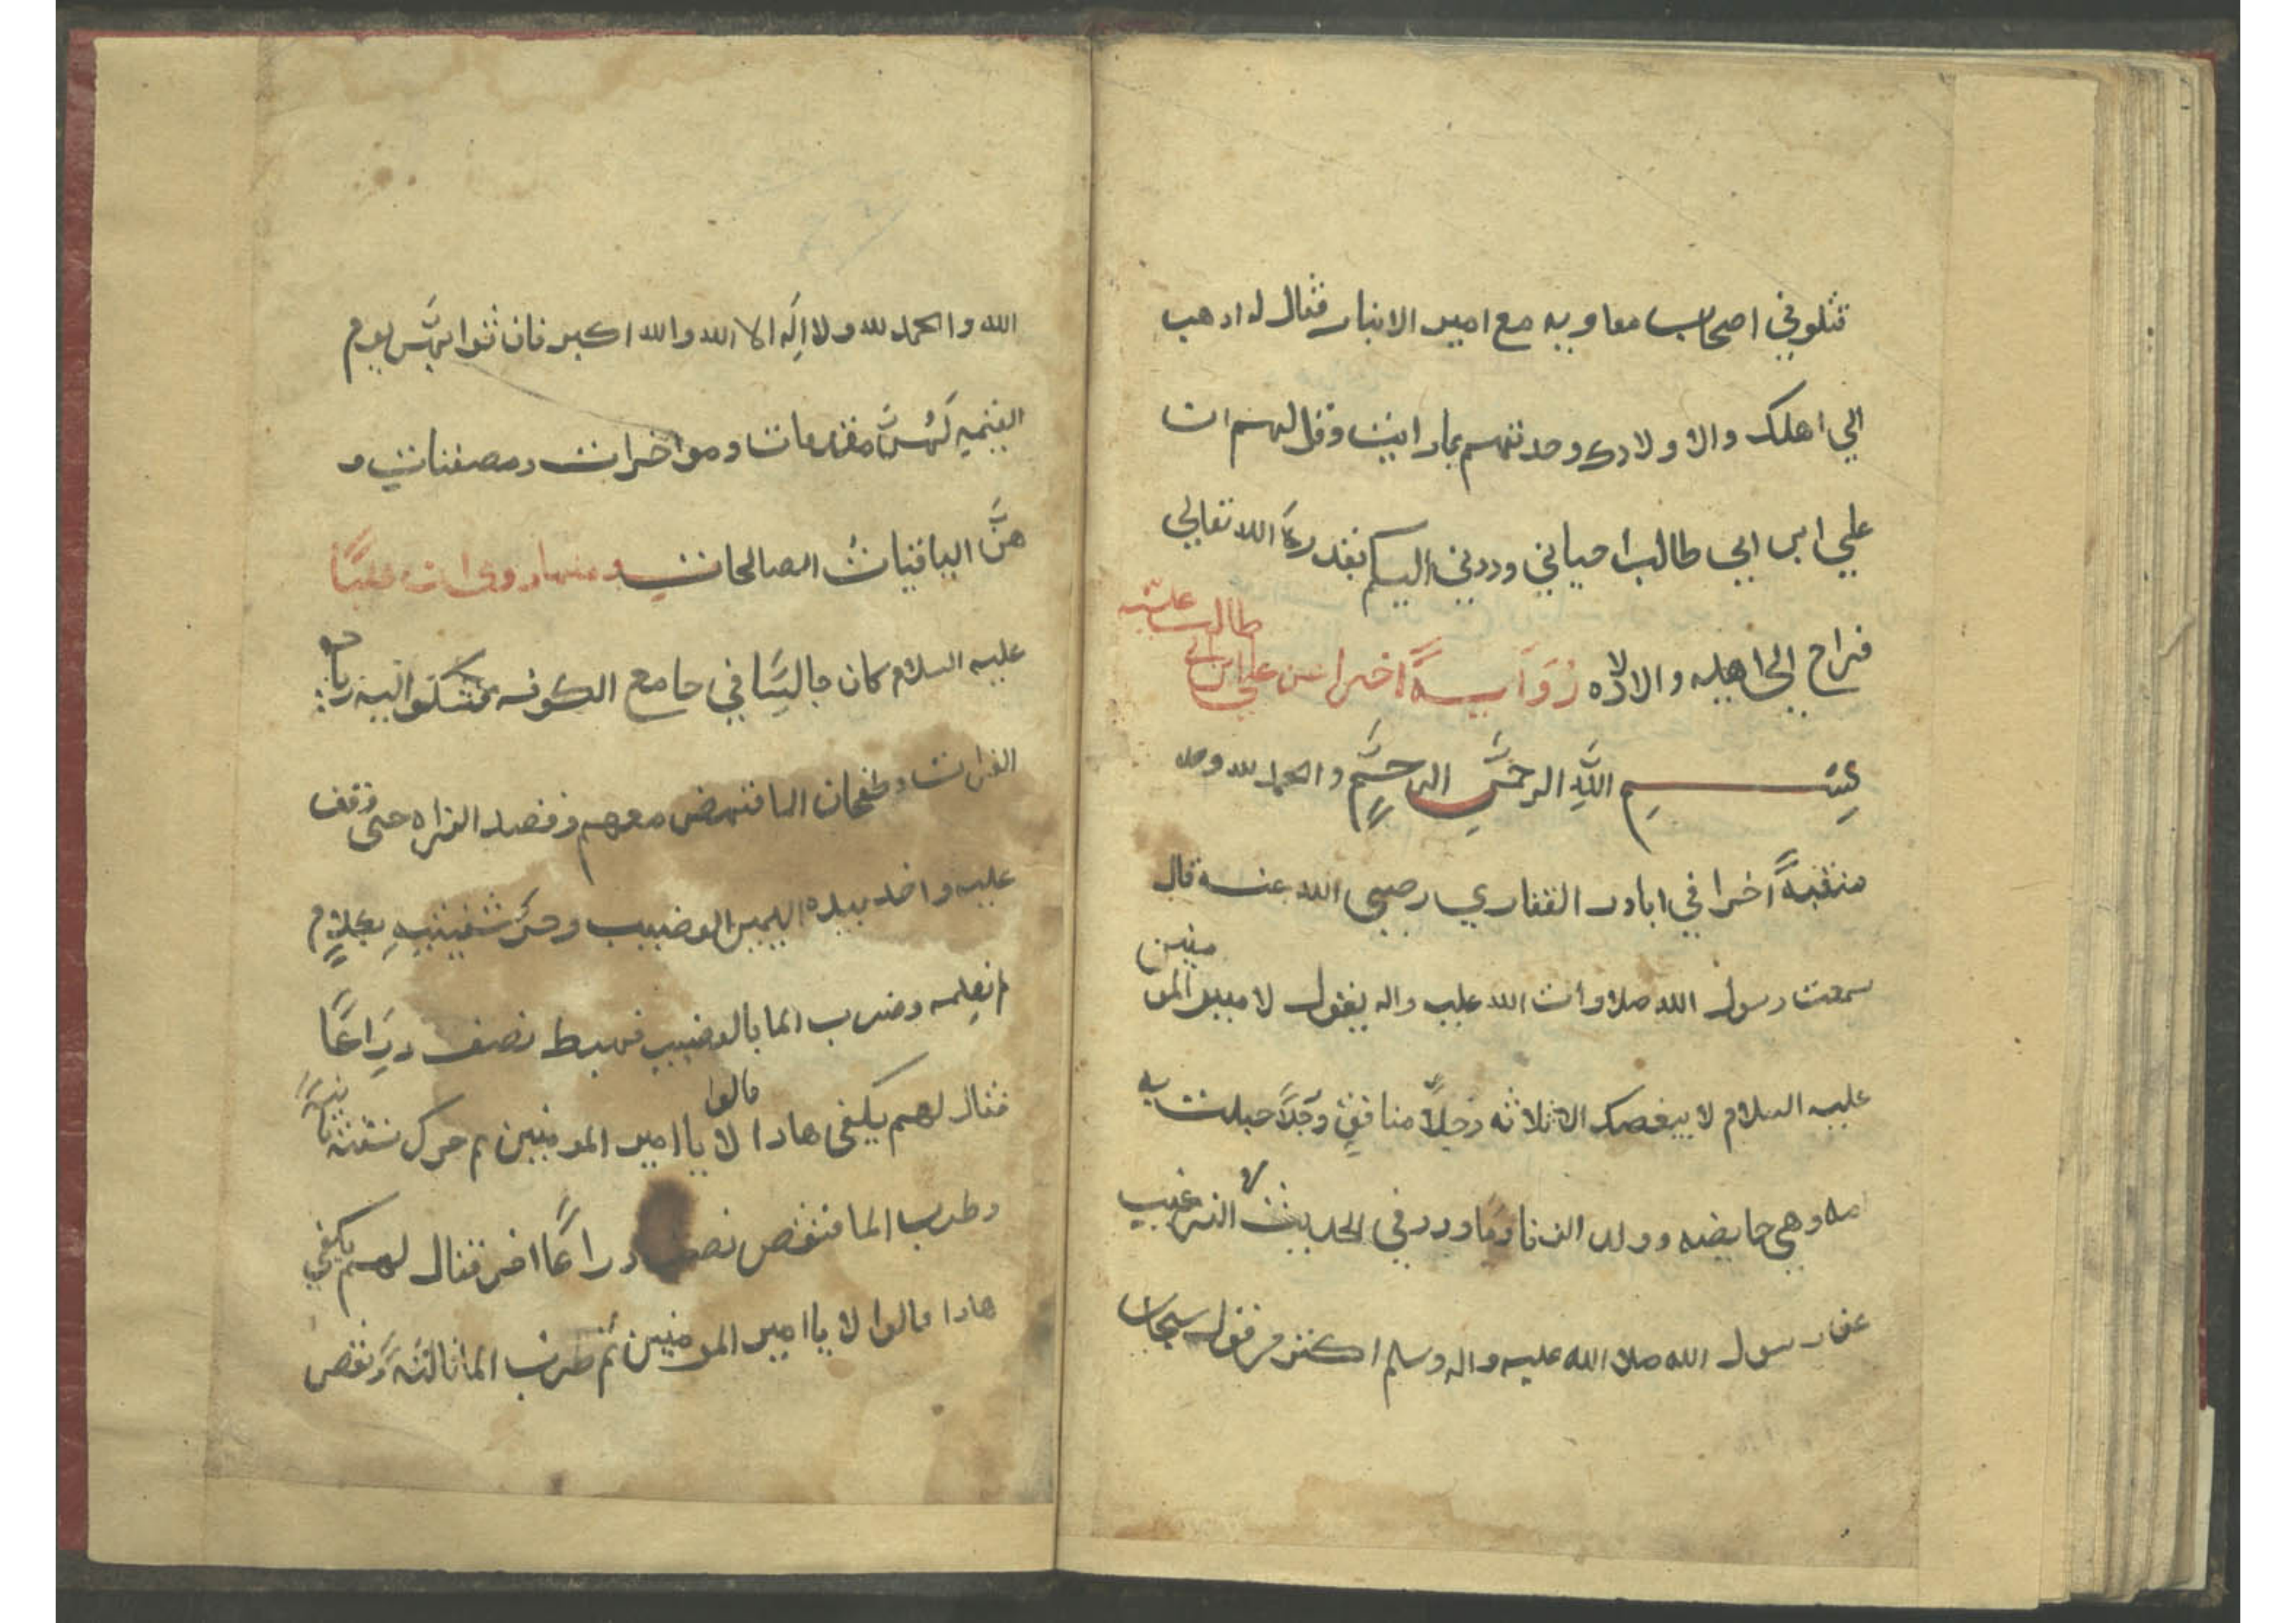 قتلوني اصحاب معاويه مع امير الانبار فقال له ادهب
الي اهلك والاولادك وحدتهم بما رايت وقل لهم ان
علي ابن ابي طالب احياني وردني اليكم بقدرة الله تعالي
فراح الي اهله والاولاده رَوَايةً اخرا عن علي ابن ابي طالب عليه
بسم الله الرحمن الرحيم والحمد لله وحده
منقبةً اخرا في ابادر الغفاري رضي الله عنه قال
سمعت رسول الله صلاوات الله عليه واله يقول لامير المومنين
عليه السلام لا يبغضك الا ثلاثه رجلاً منافقٍ ورجلاً حبلت به
امه وهي حايضه وولد الزنا وما ورد في الحديث الغريب
عن رسول الله صلا الله عليه واله وسلم اكثر من قول سبحان
الله والحمد لله ولا اله الا الله والله اكبر فان ثوابهن يوم
القيمه لهن مقدمات ومواخرات ومصفنات و
هنَّ الباقيات الصالحات ومنها روي ان عليًا
عليه السلام كان جالسًا في جامع الكوفه فشكوا اليه زيادة
الفرات وطغحان الما فنهض معهم وقصد الفراه حتى وقف
عليه واخد بيده اليمين القضيب وحرك شفيتيه بكلامٍ
لم نعلمه وضرب الما بالقضيب فهبط نصف دراعًا
فقال لهم يكفى هادا قالوا لا يا امير المومنين ثم حرك شفته ثانيةً
وطرب الما فنقص نصف دراعًا اخر فقال لهم يكفي
هادا قالوا لا يا امير المومنين ثم ضرب الما ثالثةً ونقص